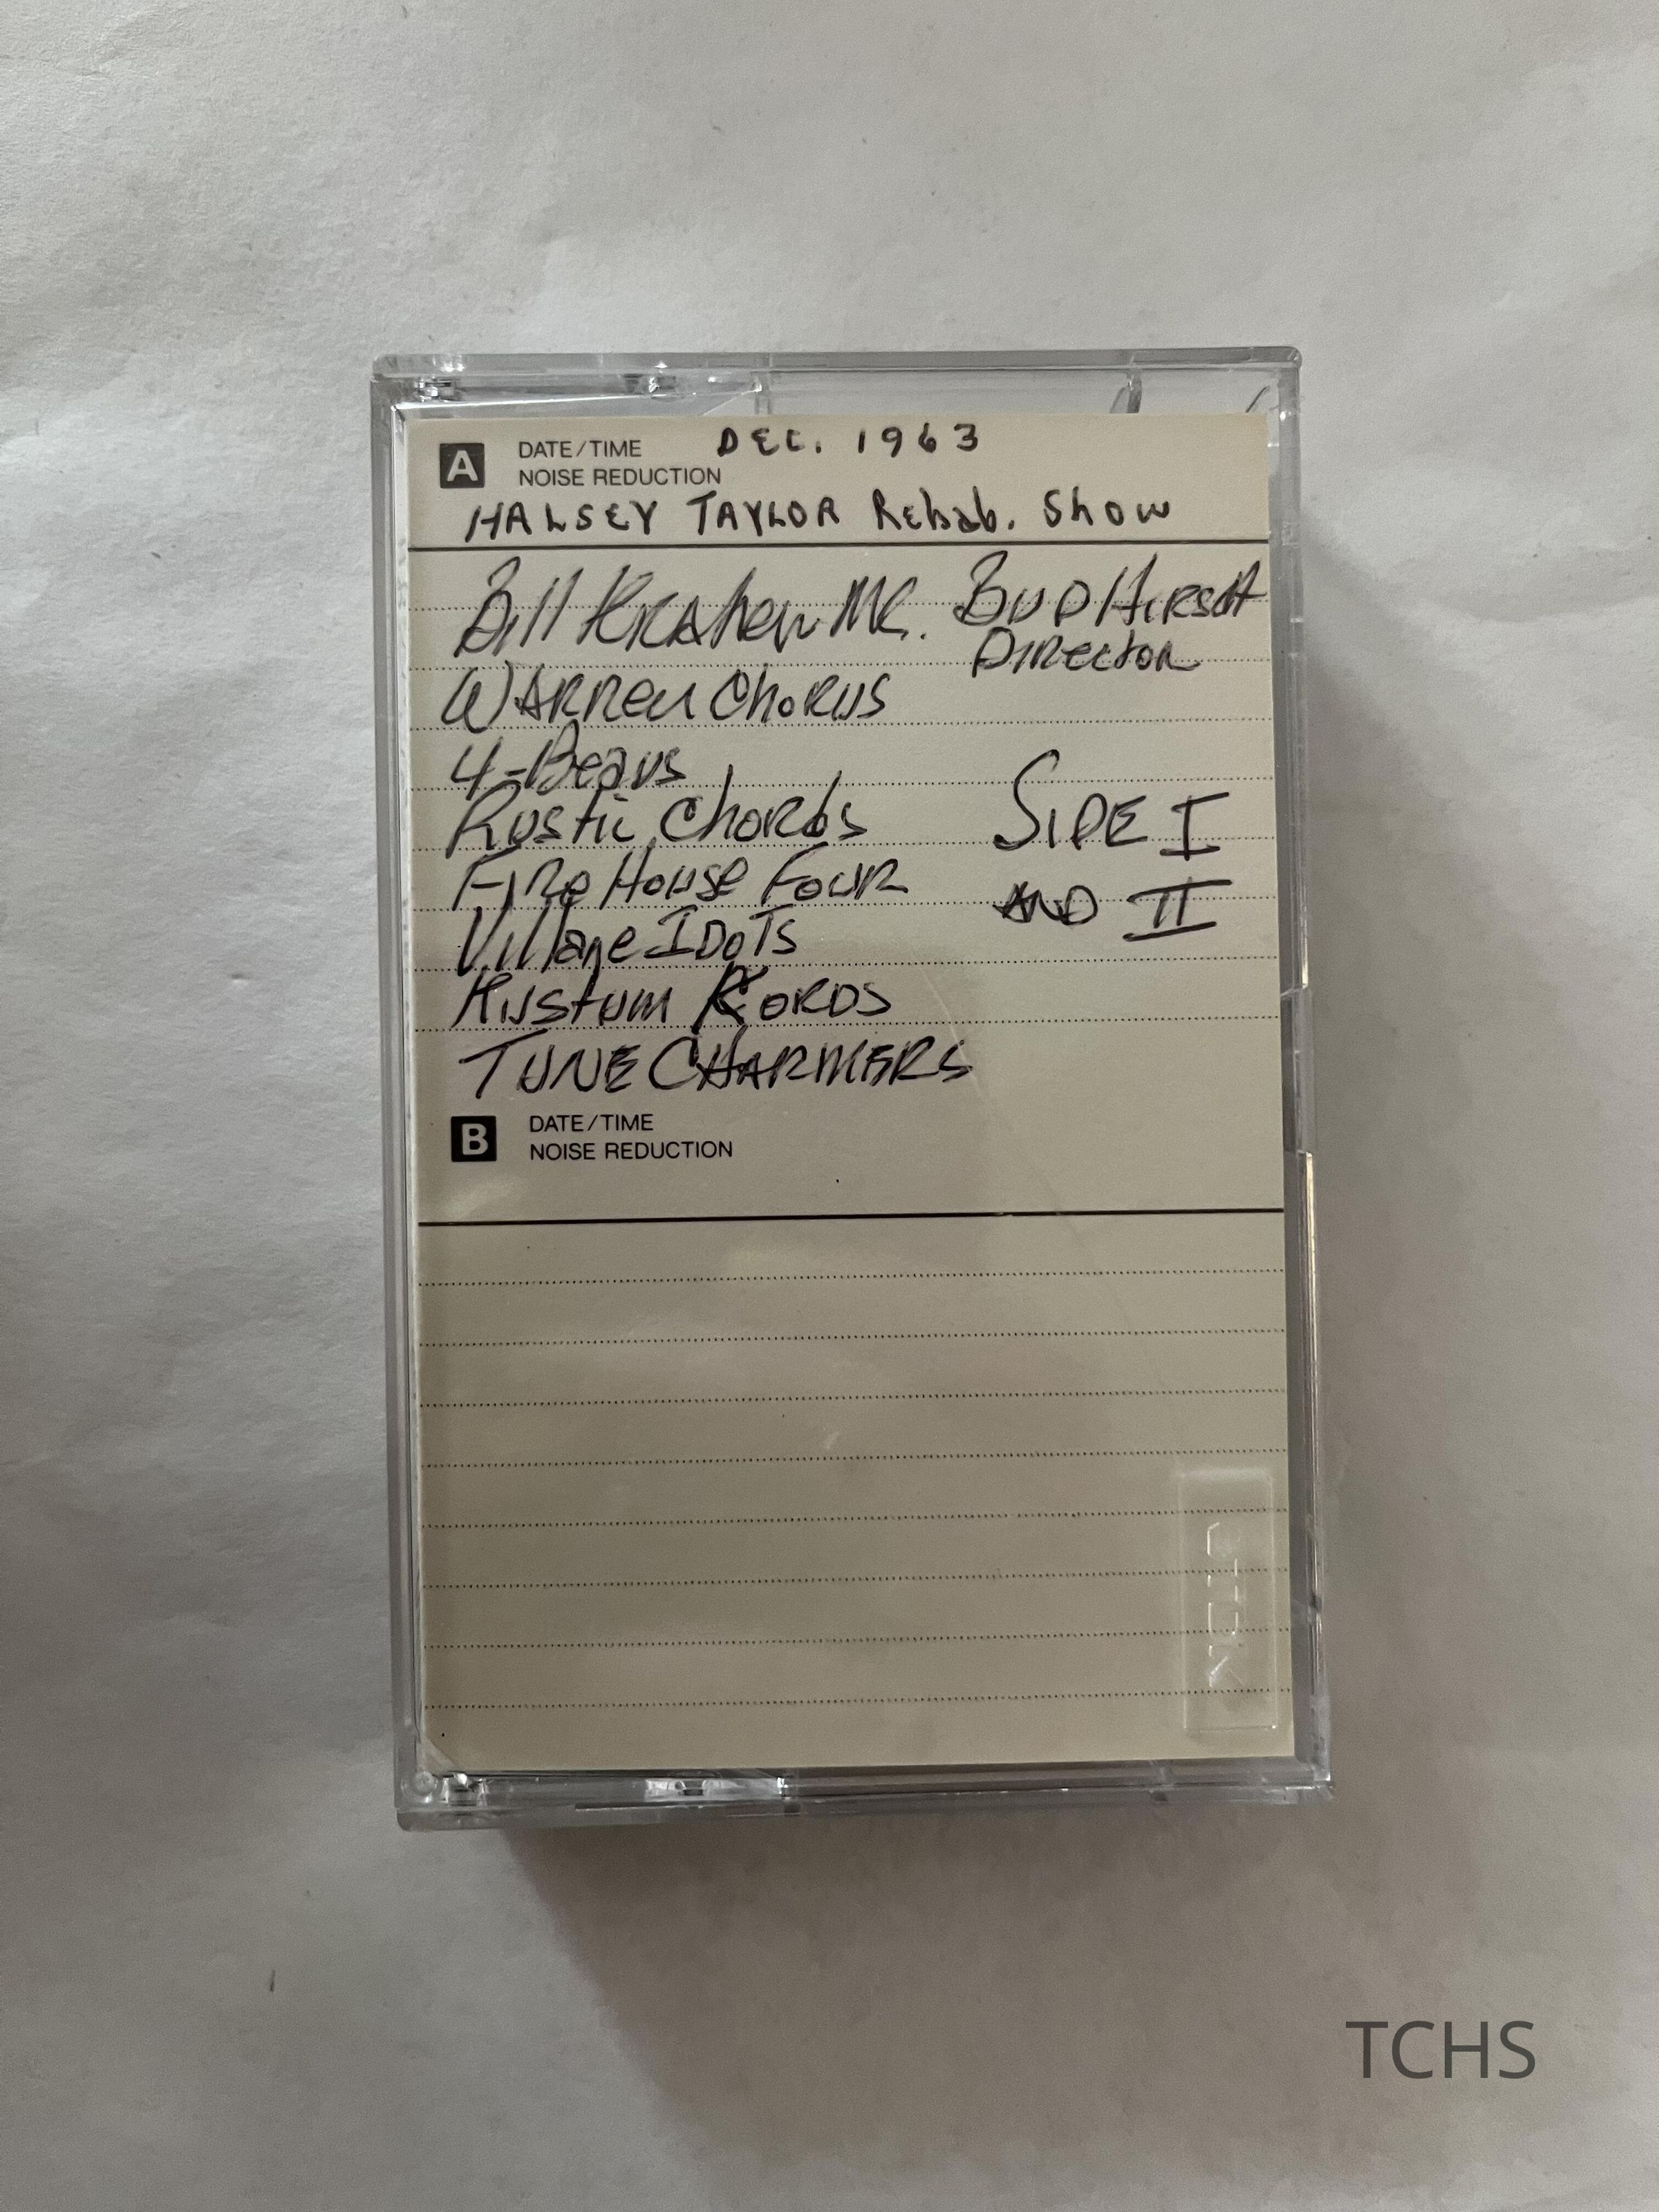 A DATE/TIME DEC. 1963
NOISE REDUCTION
HALSEY TAYLOR Rehab. Show
Bill MC. BUD HIRSCH
DIRECTOR
WARREN CHORUS
4-Beaus
Rustic Chords
SIDE I
FIRE House FOUR
AND II
Village IDOTS
Kustum KORDS
TUNE CHARMERS
B DATE/TIME
NOISE REDUCTION
TCHS